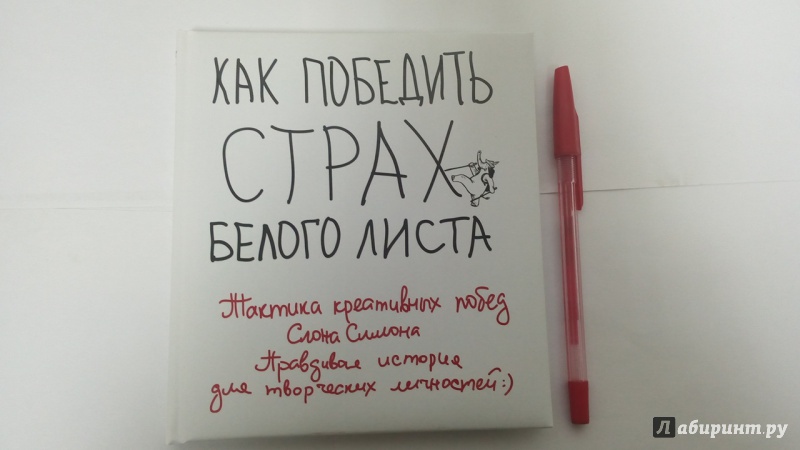 КАК ПОБЕДИТЬ
СТРАХ
БЕЛОГО ЛИСТА
Тактика креативных побед
Слона Симона
Правдивая история
для творческих личностей:)
Лабиринт.ру